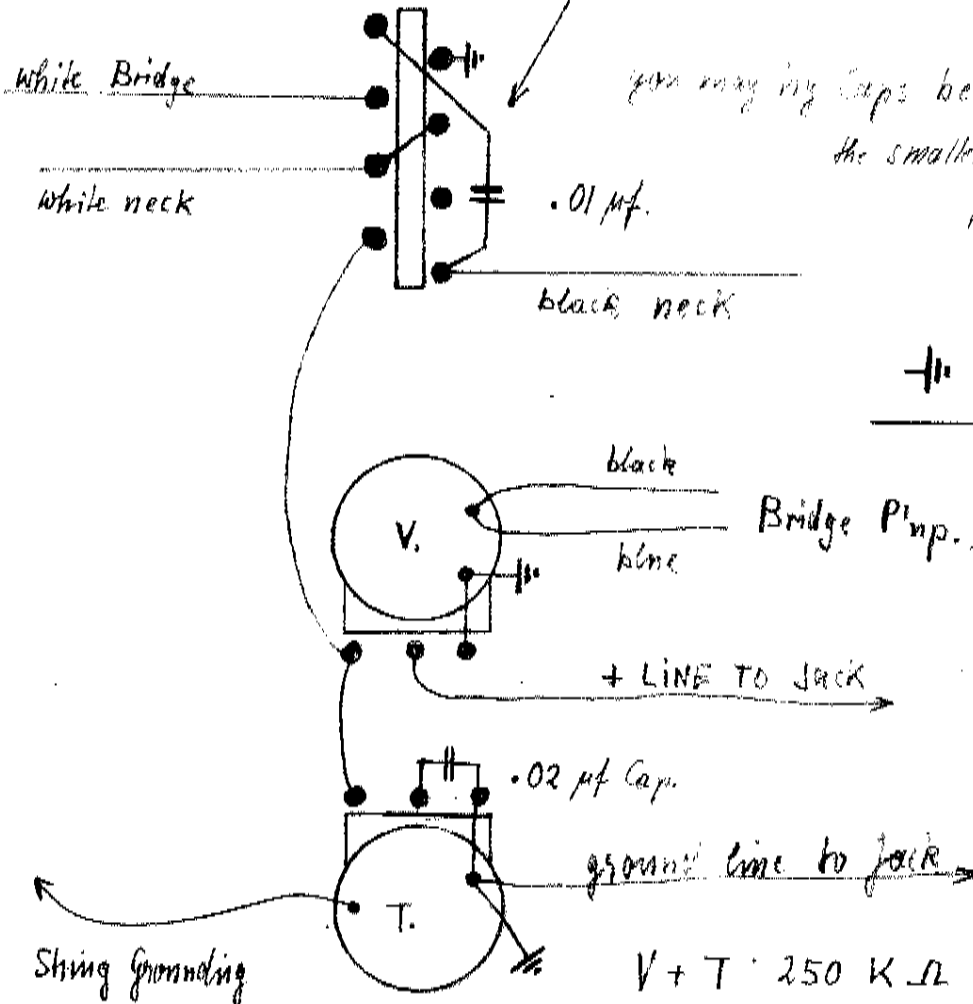 white Bridge
you may try Caps be
the smalle
white neck
.01 µf.
black neck
black
V.
Bridge P'up.
blue
+ LINE TO JACK
.02 µf Cap.
ground line to Jack
T.
String Grounding
V + T · 250 K Ω